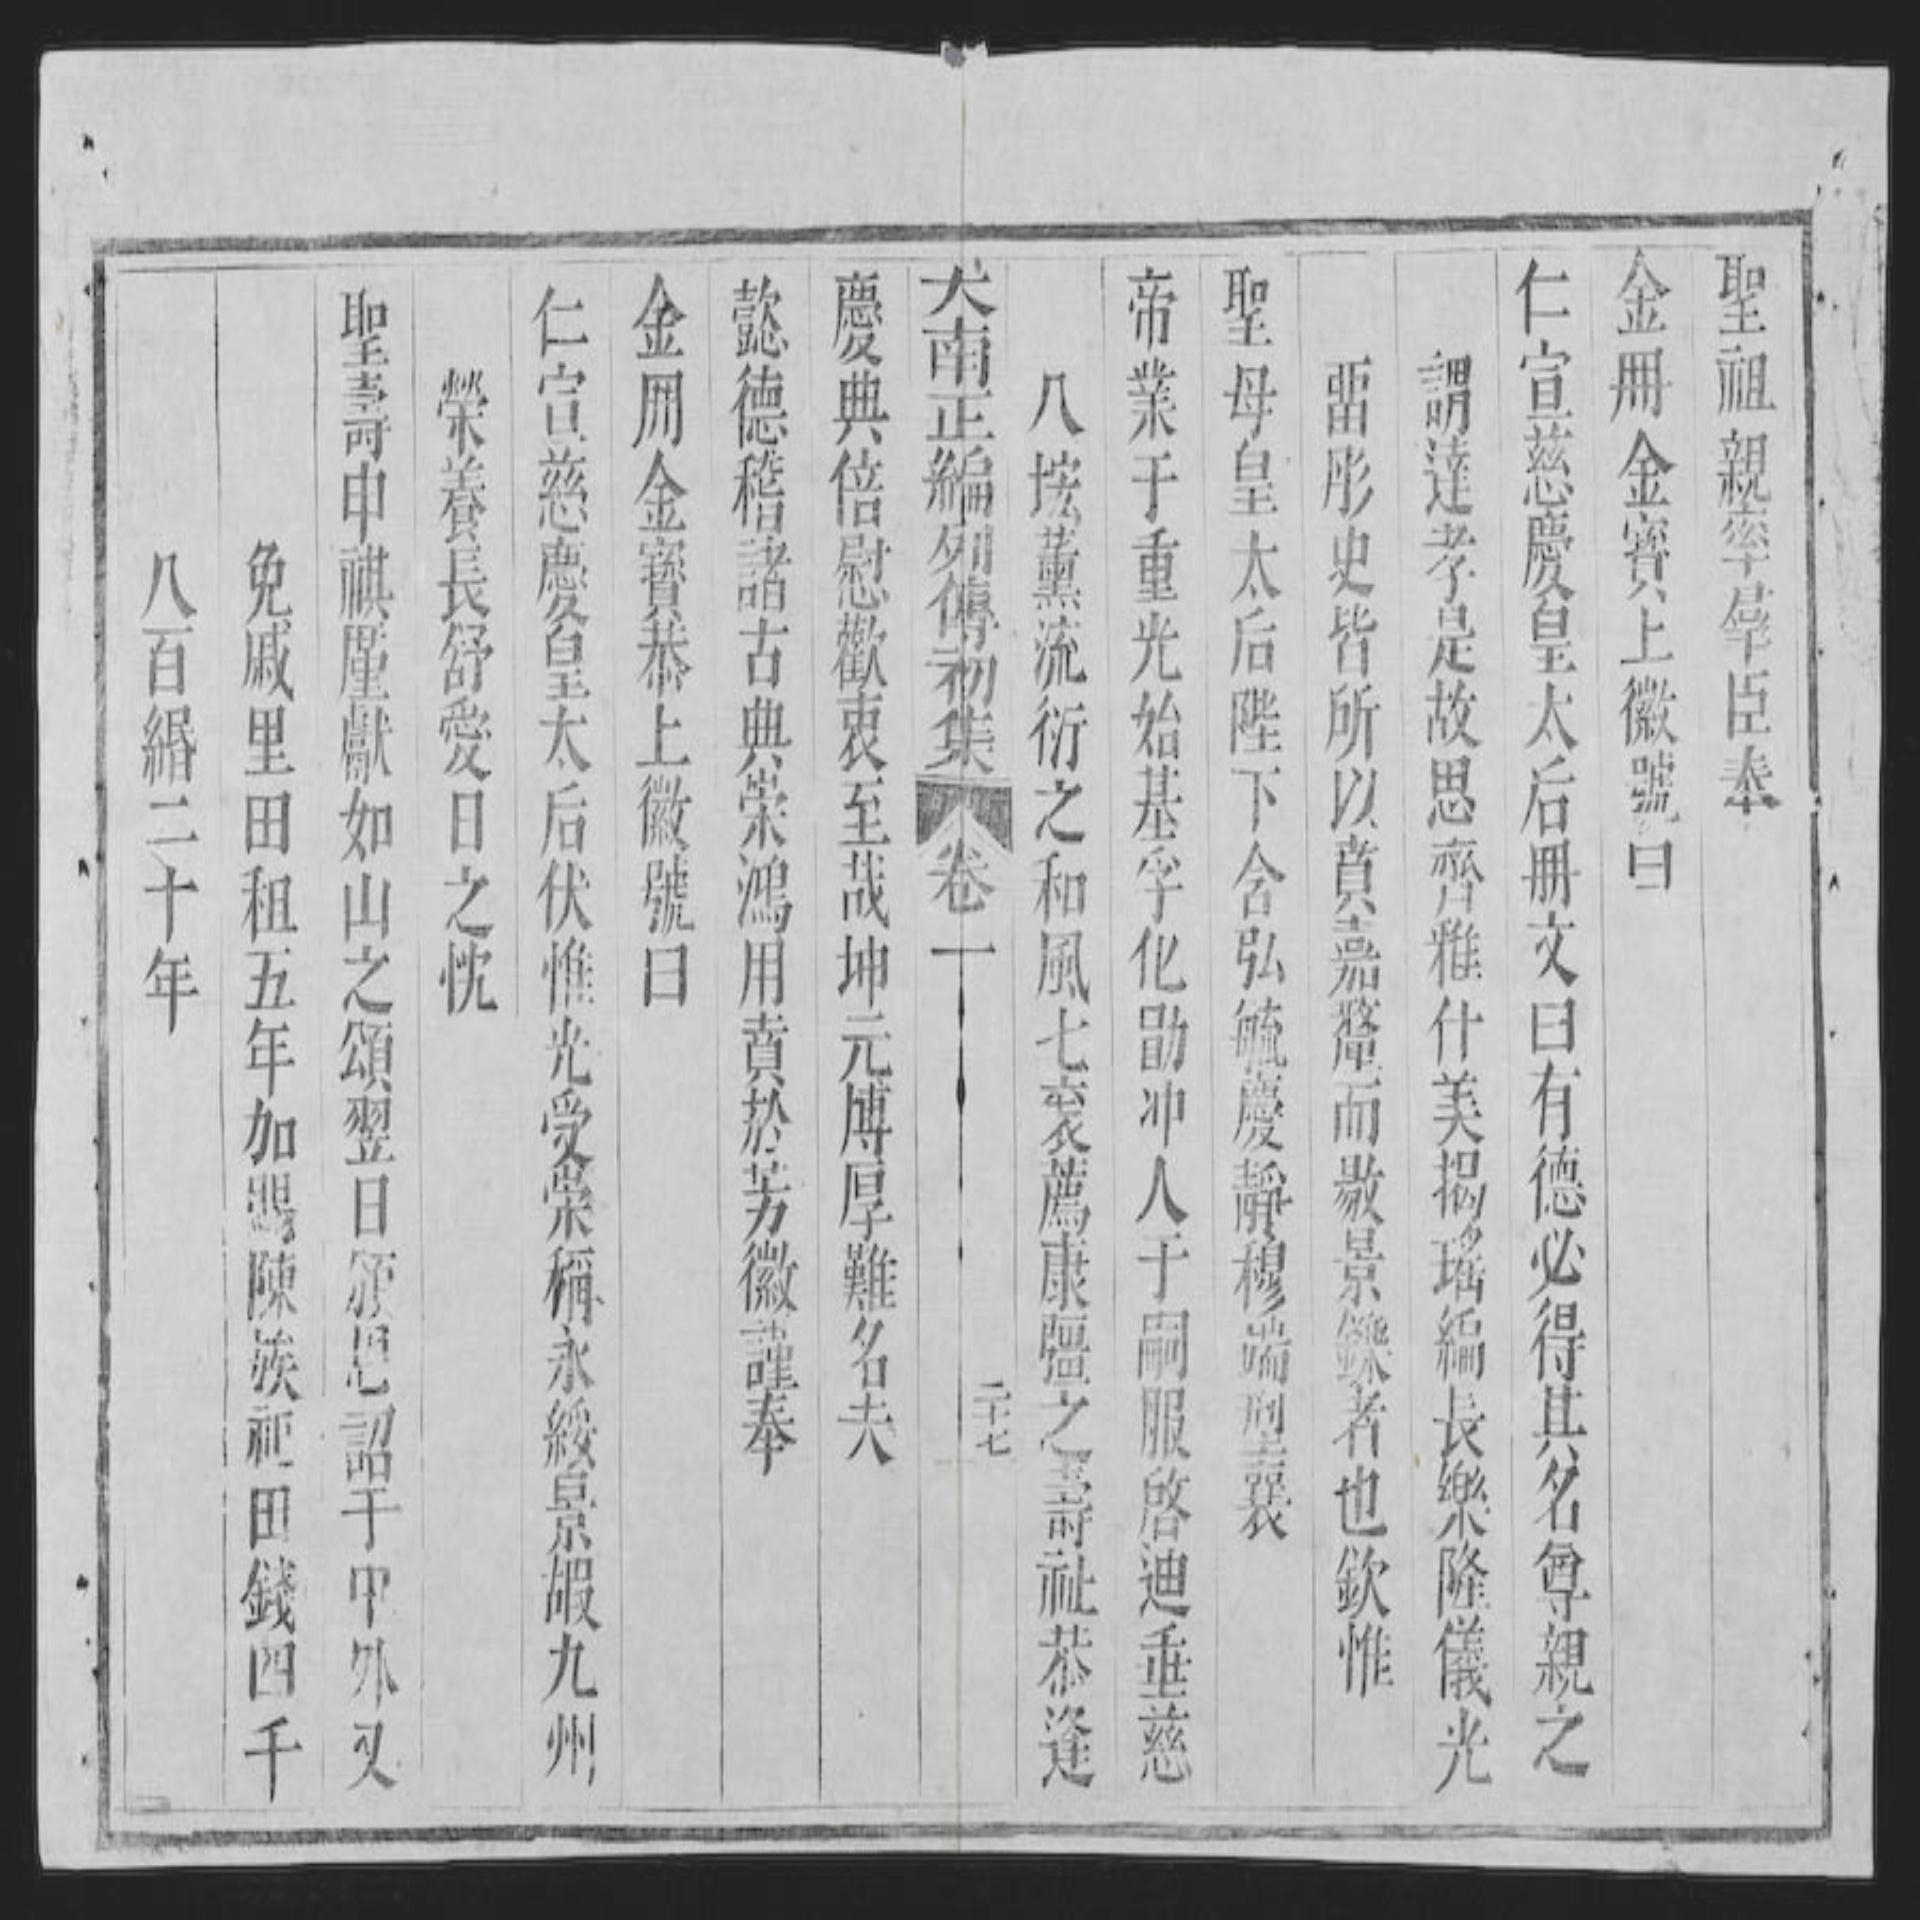 聖祖親率羣臣奉
金冊金寶上徽號曰
仁宣慈慶皇太后冊文曰有德必得其名尊親之
謂達孝是故思齊雅什美揭瑤編長樂隆儀光
畱彤史皆所以賁嘉釐而敭景鑠者也欽惟
聖母皇太后陛下含弘毓慶靜穆端型襄
帝業于重光始基孚化勖冲人于嗣服啓迪垂慈
八垓薰流衍之和風七袠薦康彊之壽祉恭逢
大南正編列傳初集 卷一 二十七
慶典倍慰歡衷至哉坤元博厚難名夫
懿德稽諸古典崇鴻用賁於芳徽謹奉
金冊金寶恭上徽號曰
仁宣慈慶皇太后伏惟光受崇稱永綏景嘏九州
榮養長舒愛日之忱
聖壽申祺廑獻如山之頌翌日頒恩詔于中外又
免戚里田租五年加賜陳族祀田錢四千
八百緡二十年